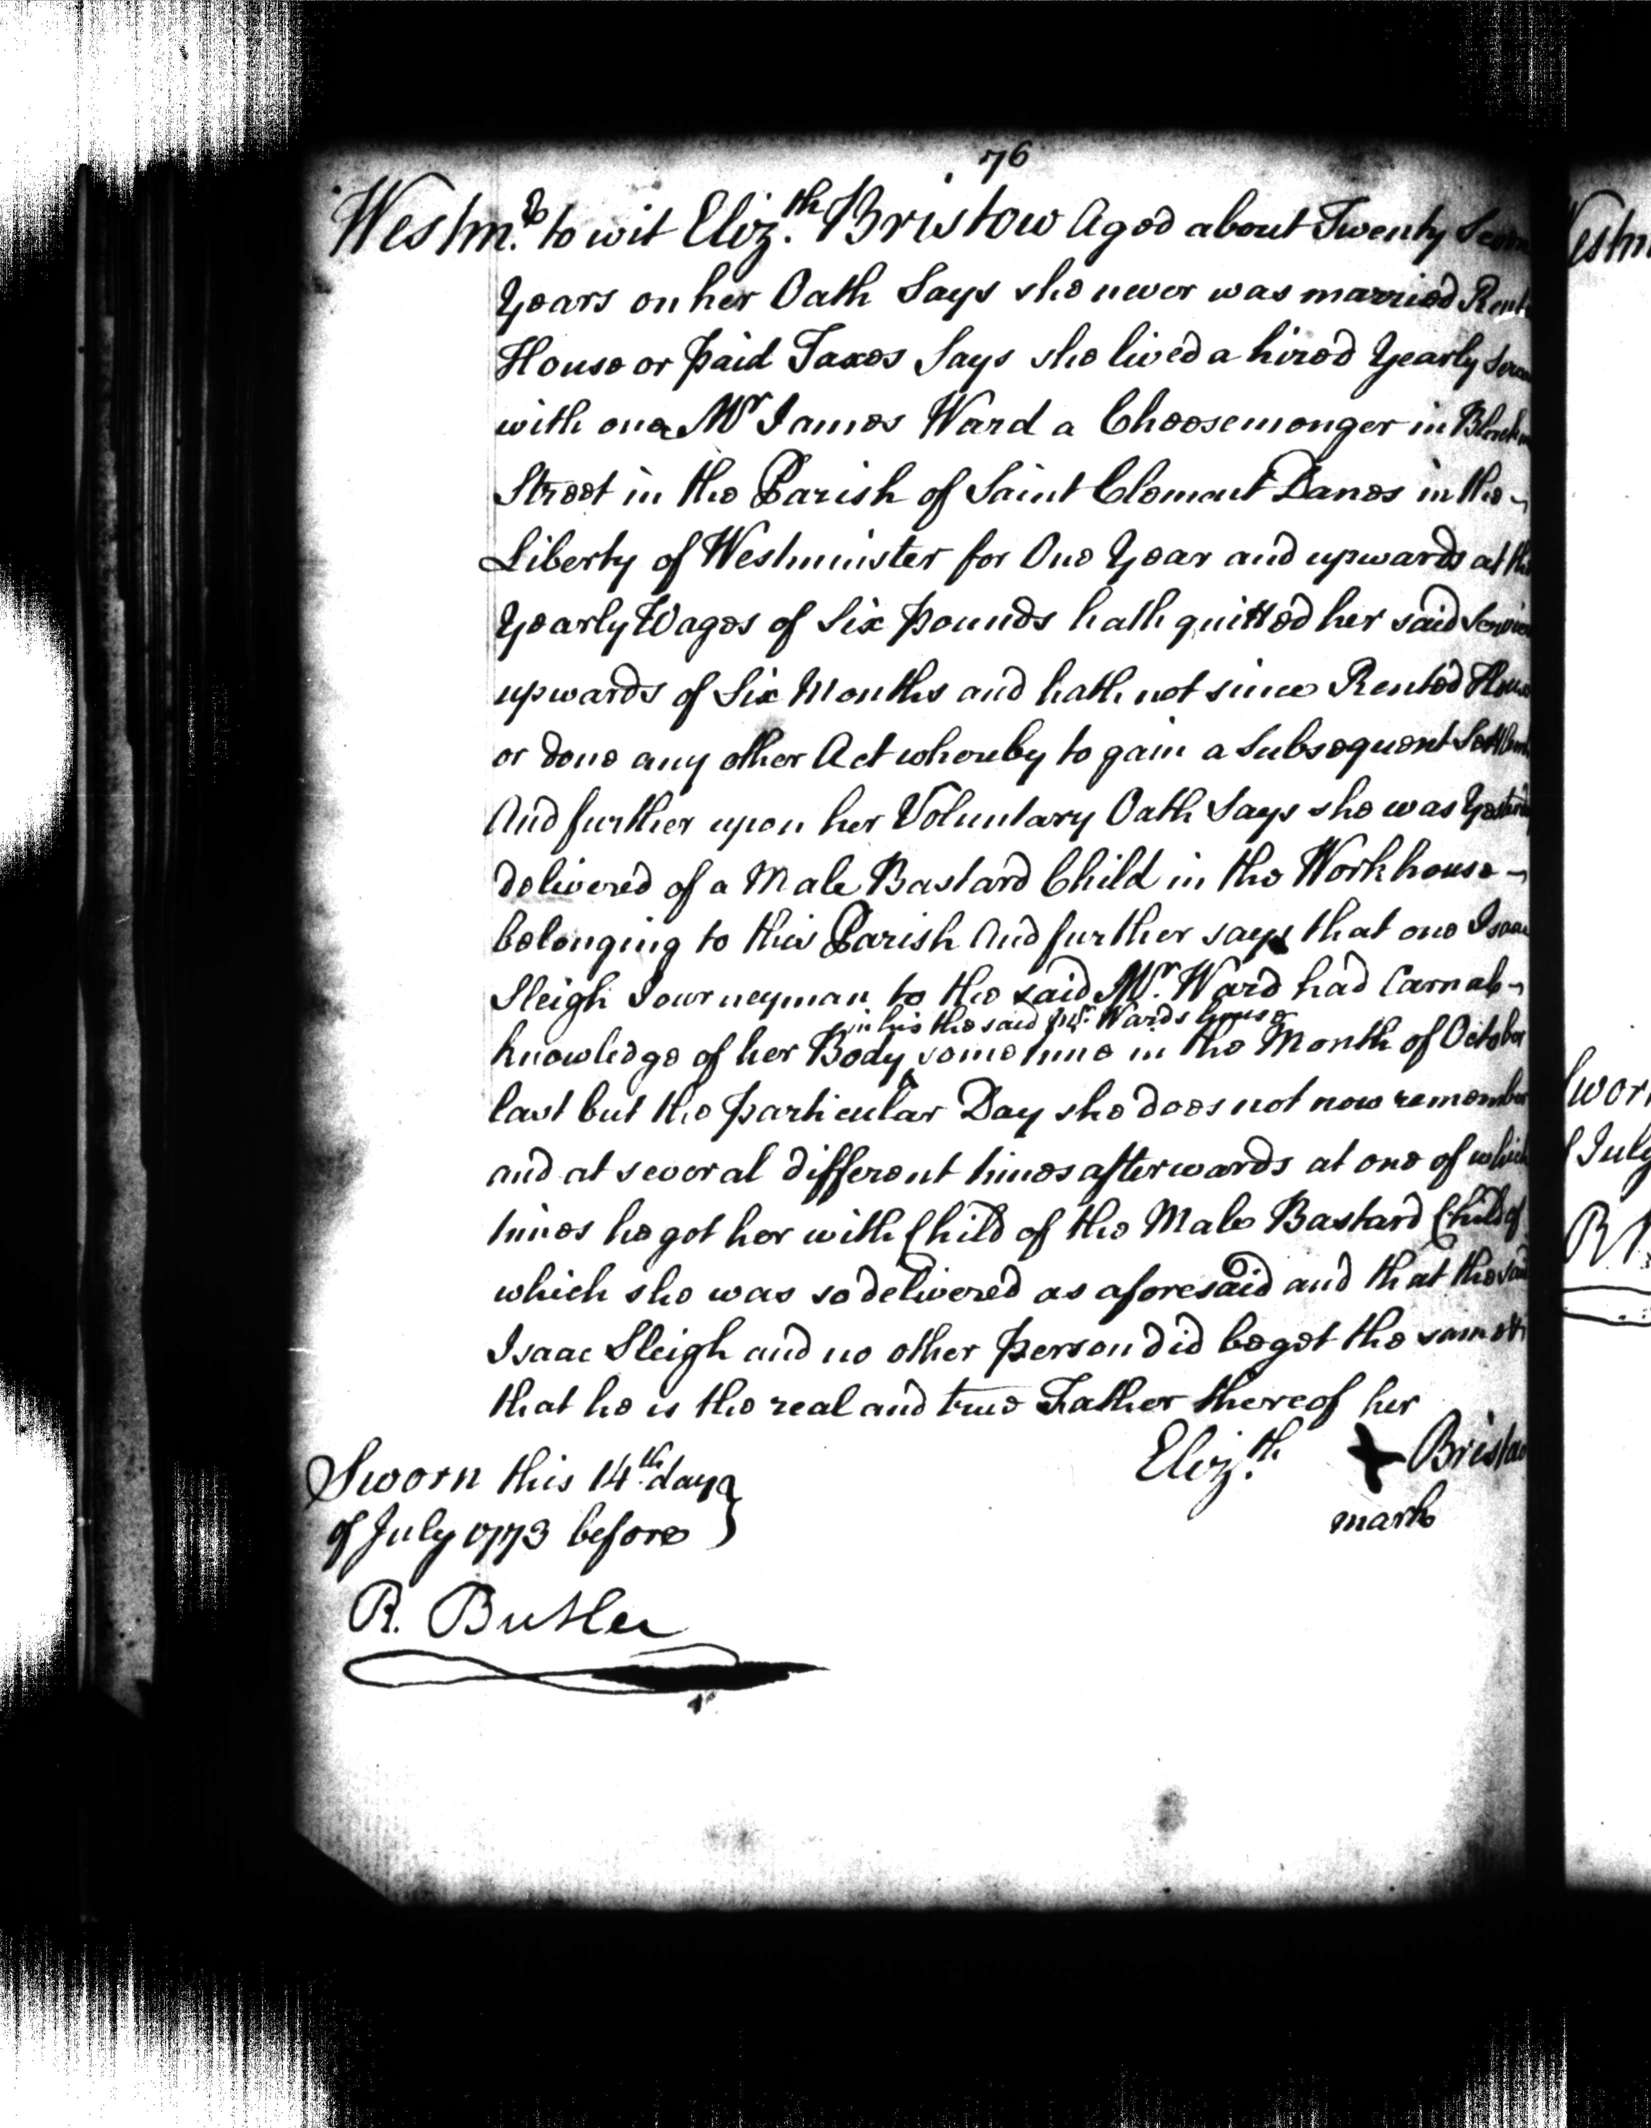 76
Westmr. to wit Elizth. Bristow Aged about Twenty Seven
Years on her Oath Says she never was married Rent
House or paid Taxes Says she lived a hired Yearly
with one Mr James Ward a Cheesemonger in
Street in the Parish of Saint Clement Danes in the
Liberty of Westminster for One Year and upwards at the
Yearly Wages of Six pounds hath quitted her said Service
upwards of Six Months and hath not since Rented House
or done any other Act whereby to gain a Subsequent
And further upon her Voluntary Oath Says she was
delivered of a Male Bastard Child in the Workhouse
belonging to this Parish And further says that one Isaac
Sleigh Journeyman to the said Mr. Ward had Carnal
in his the said Mr. Wards house
knowledge of her Body some time in the Month of October
last but the particular Day she does not now remember
and at several different times afterwards at one of which
times he got her with Child of the Male Bastard Child of
which she was so delivered as aforesaid and that the said
Isaac Sleigh and no other person did beget the same
that he is the real and true Father thereof her
Elizth. X Bristow
mark
Sworn this 14th. day
of July 1773 before
R. Butler
July